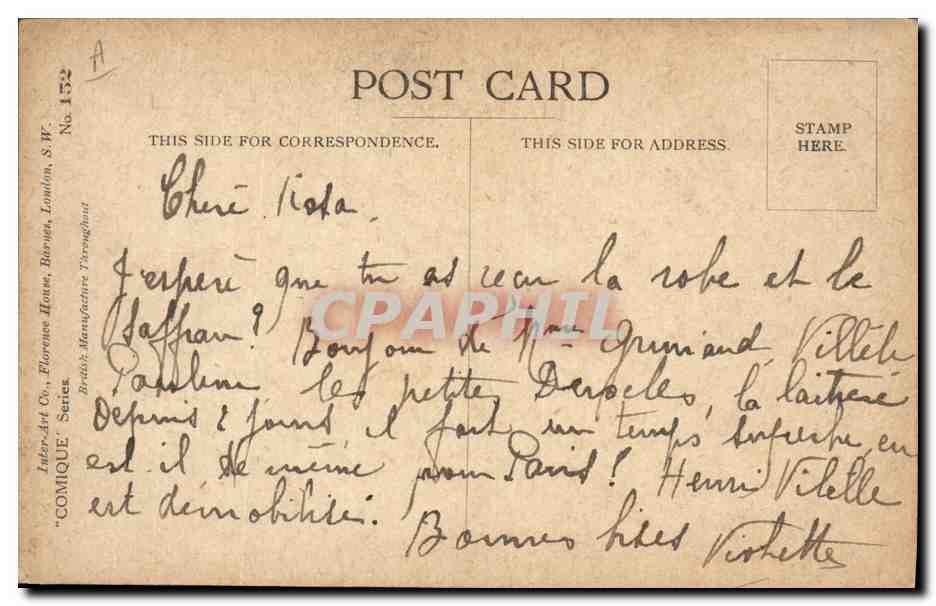 A
POST CARD
THIS SIDE FOR CORRESPONDENCE.
THIS SIDE FOR ADDRESS.
STAMP
HERE.
Inter-Art Co., Florence House, Barnes, London, S.W.
"COMIQUE" Series.
No. 152
British Manufacture Throughout
CPARAMA
Chère
J'espère que tu as reçu la robe et le
Saffran? Bonjour de Mme
les petites la laitière
depuis 2 jours, il fait un temps superbe, en
est il de même pour Paris? Henri Vilelle
est démobilisé.
Bonnes bises Violette